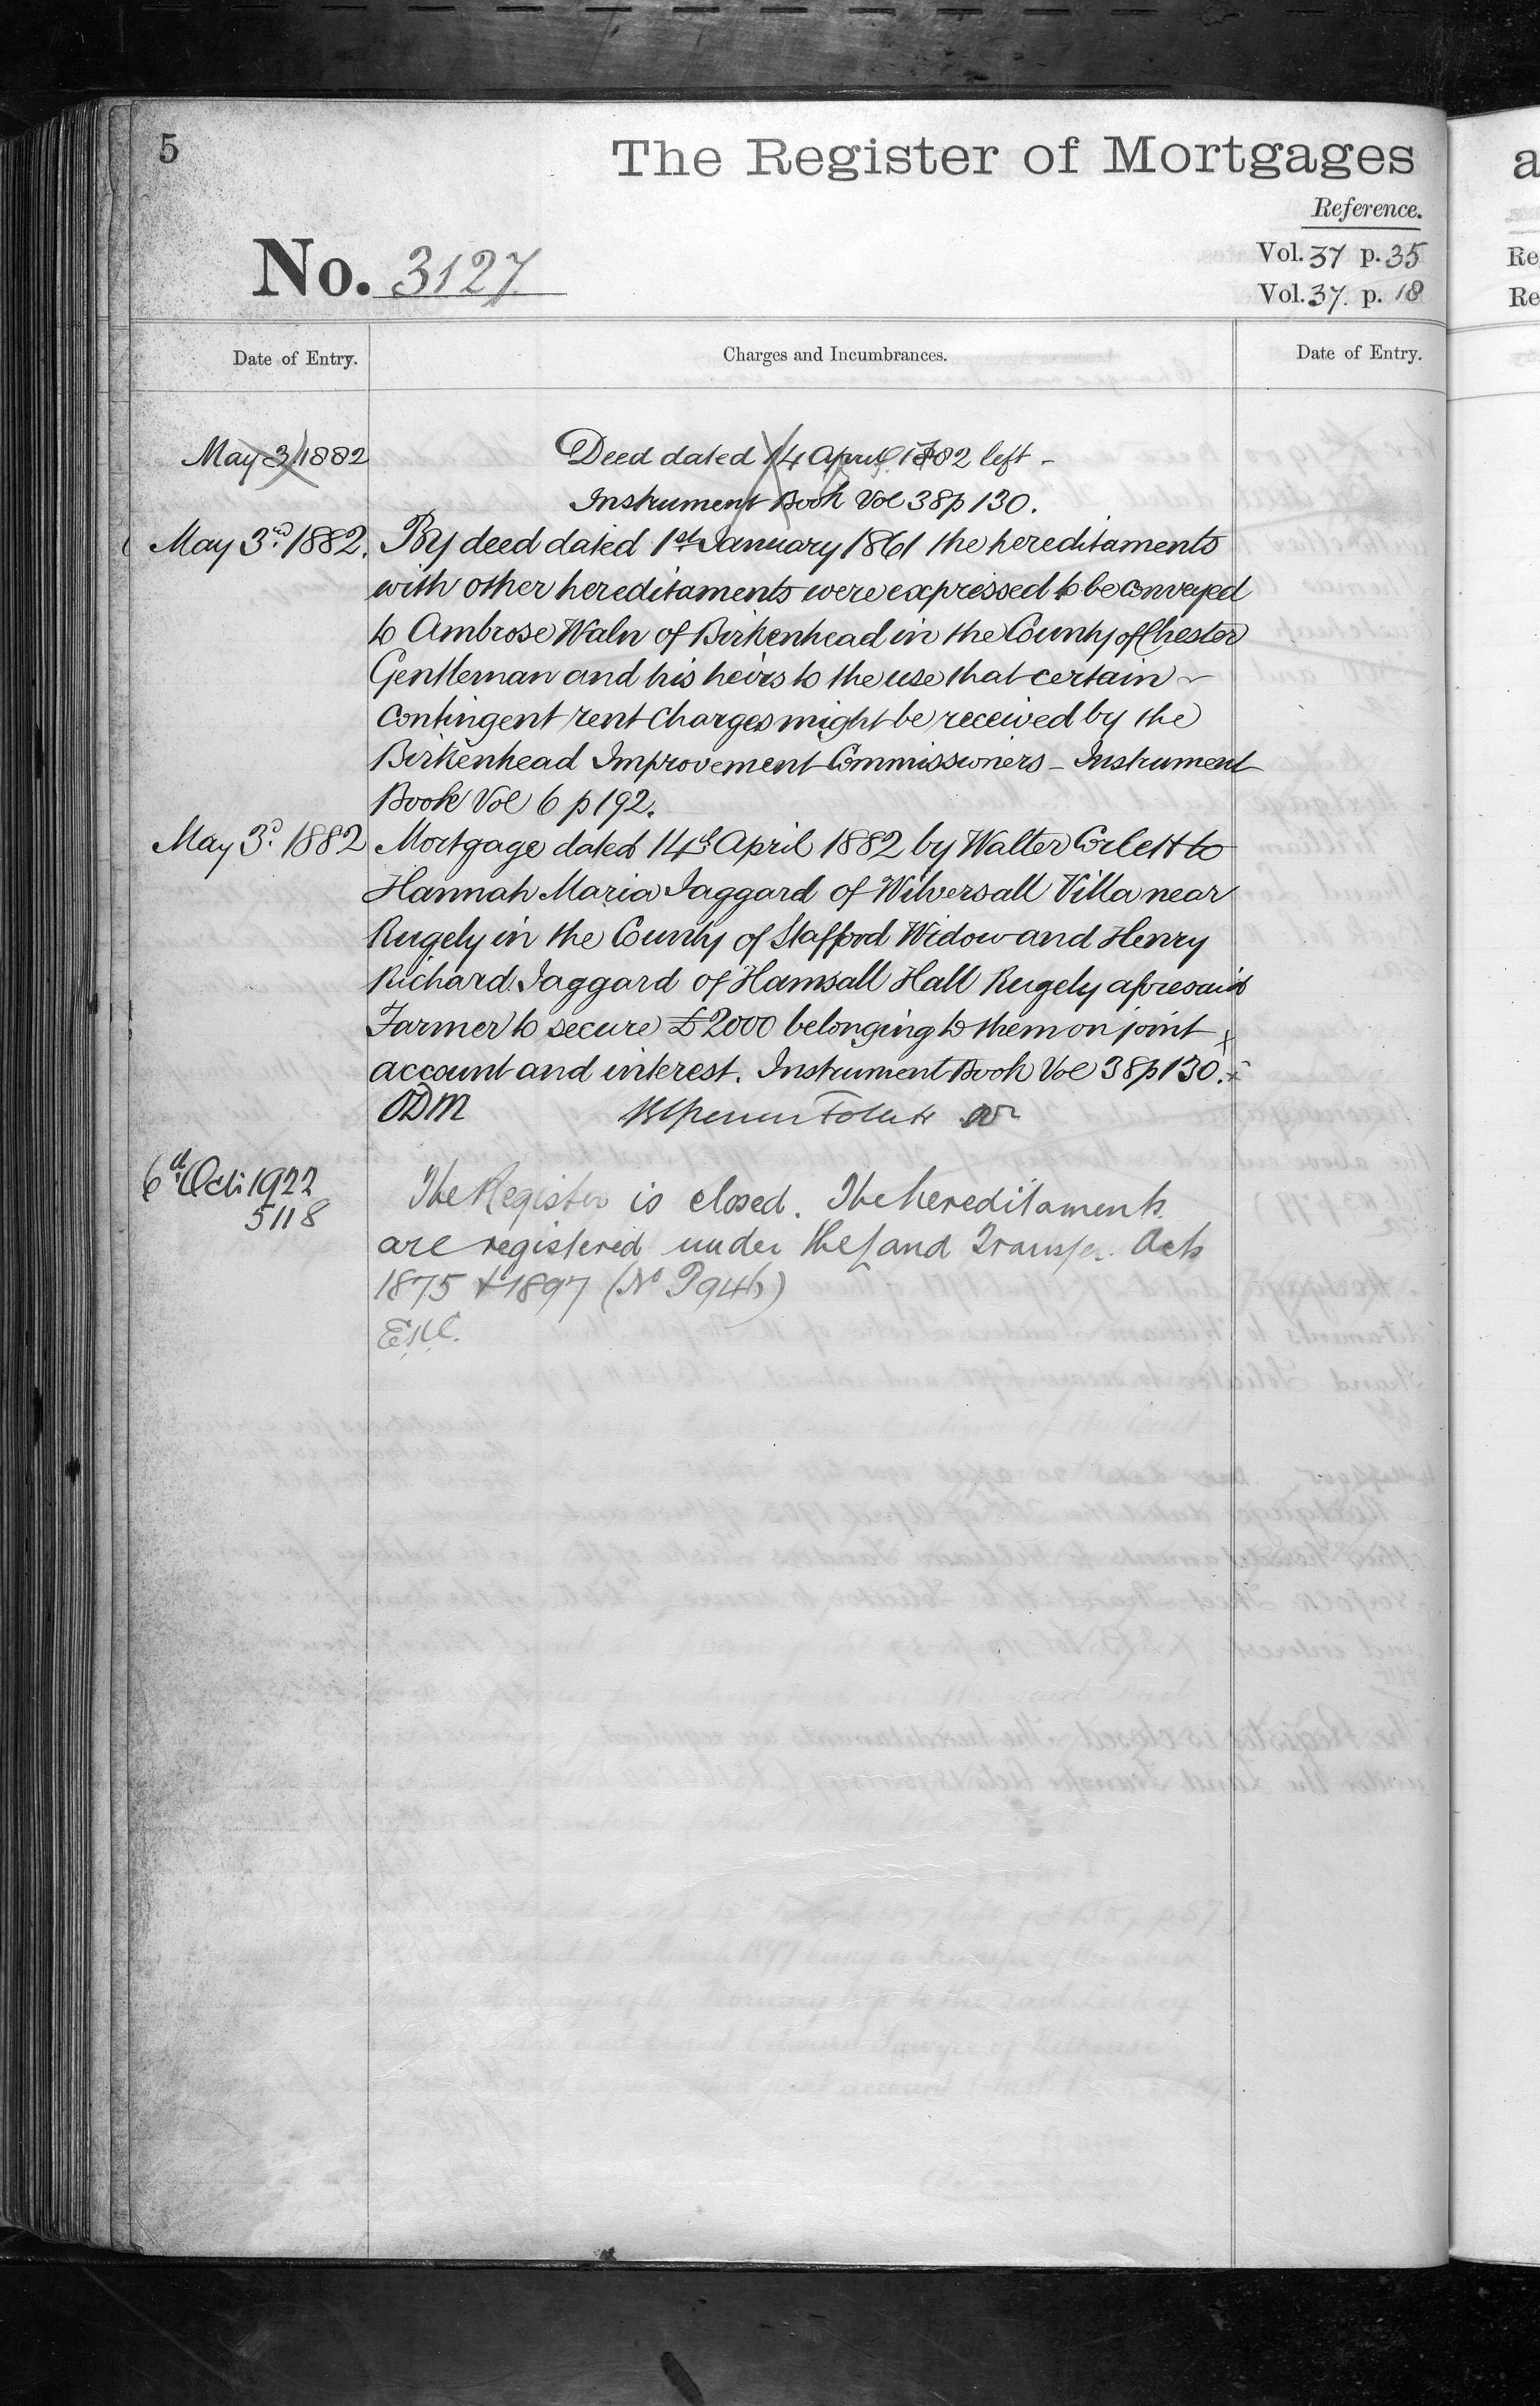 5
The Register of Mortgages
Reference.
No. 3127.
Vol. 37 p. 35
Vol. 37. p. 18
Date of Entry.
Charges and Incumbrances.
Date of Entry.
May 3 1882
Deed dated 14 April 1882 left -
Instrument Book Vol 38 p 130.
May 3rd 1882.
By deed dated 1st January 1861 the hereditaments
with other hereditaments were expressed to be conveyed
to Ambrose Waln of Birkenhead in the County of Chester
Gentleman and his heirs to the use that certain
contingent rent charges might be received by the
Birkenhead Improvement Commissioners - Instrument
Book Vol 6 p 192.
May 3d. 1882
Mortgage dated 14th April 1882 by Walter Corlett to
Hannah Maria Jaggard of Wilversall Villa near
Rugely in the County of Stafford Widow and Henry
Richard Jaggard of Hamsall Hall Rugely aforesaid
Farmer to secure £2000 belonging to them on joint
account and interest. Instrument Book Vol 38 p 130.
ODM
6th Oct: 1922
5118
The Register is closed. The hereditaments
are registered under the Land Transfer Acts
1875 & 1897 (No P946)
a
Re
Re